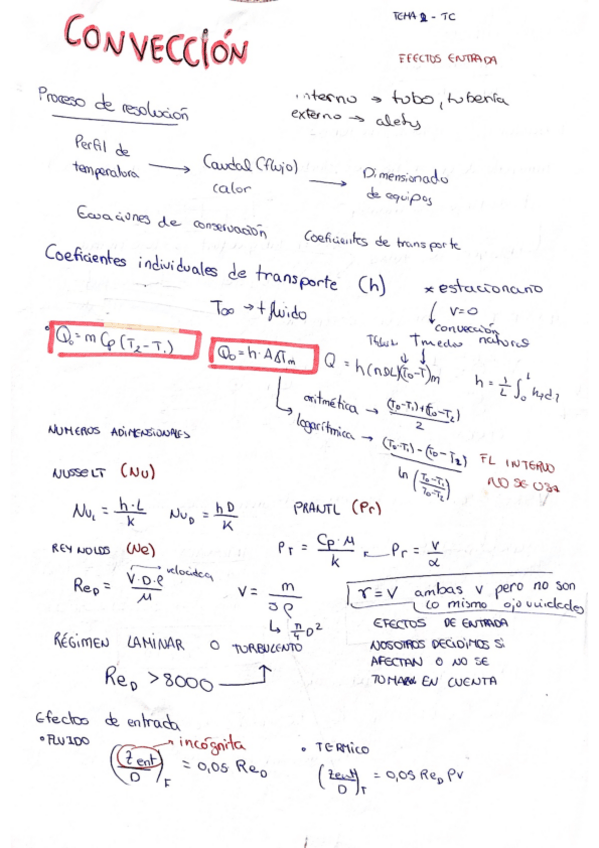 TEMA 2 - TC
CONVECCIÓN
EFECTOS ENTRADA
Proceso de resolución
interno → tubo, tubería
externo → aletas
Perfil de temperatura → Caudal (flujo) calor → Dimensionado de equipos
Ecuaciones de conservación
Coeficientes de transporte
Coeficientes individuales de transporte (h)
* estacionario
T∞ → t fluido
↓ v=0
convección natural
Q₀ = m Cp (T₂ - T₁)
Q₀ = h · A ΔTm
Q = h (πDL)(T₀-T)m
h = 1/L ∫₀ᴸ
aritmética → (T₀-T₁)+(T₀-T₂) / 2
logarítmica → (T₀-T₁) - (T₀-T₂) / ln (T₀-T₁ / T₀-T₂)
FL INTERNO
NO SE USA
NUMEROS ADIMENSIONALES
NUSSELT (Nu)
Nu_L = h·L / k
Nu_D = h D / K
PRANTL (Pr)
Pr = Cp·μ / k
Pr = ν / α
REYNOLDS (Ne)
Re_D = V·D·ρ / μ
velocidad
V = m / S ρ
↳ π/4 D²
r = V ambas v pero no son
lo mismo ojo unidades
EFECTOS DE ENTRADA
NOSOTROS DECIDIMOS SI
AFECTAN O NO SE
TOMAN EN CUENTA
RÉGIMEN LAMINAR O TURBULENTO
Re_D > 8000
Efectos de entrada
• FLUIDO
incógnita
(Zent / D)F = 0,05 Re_D
• TERMICO
(Zent / D)T = 0,05 Re_D Pr